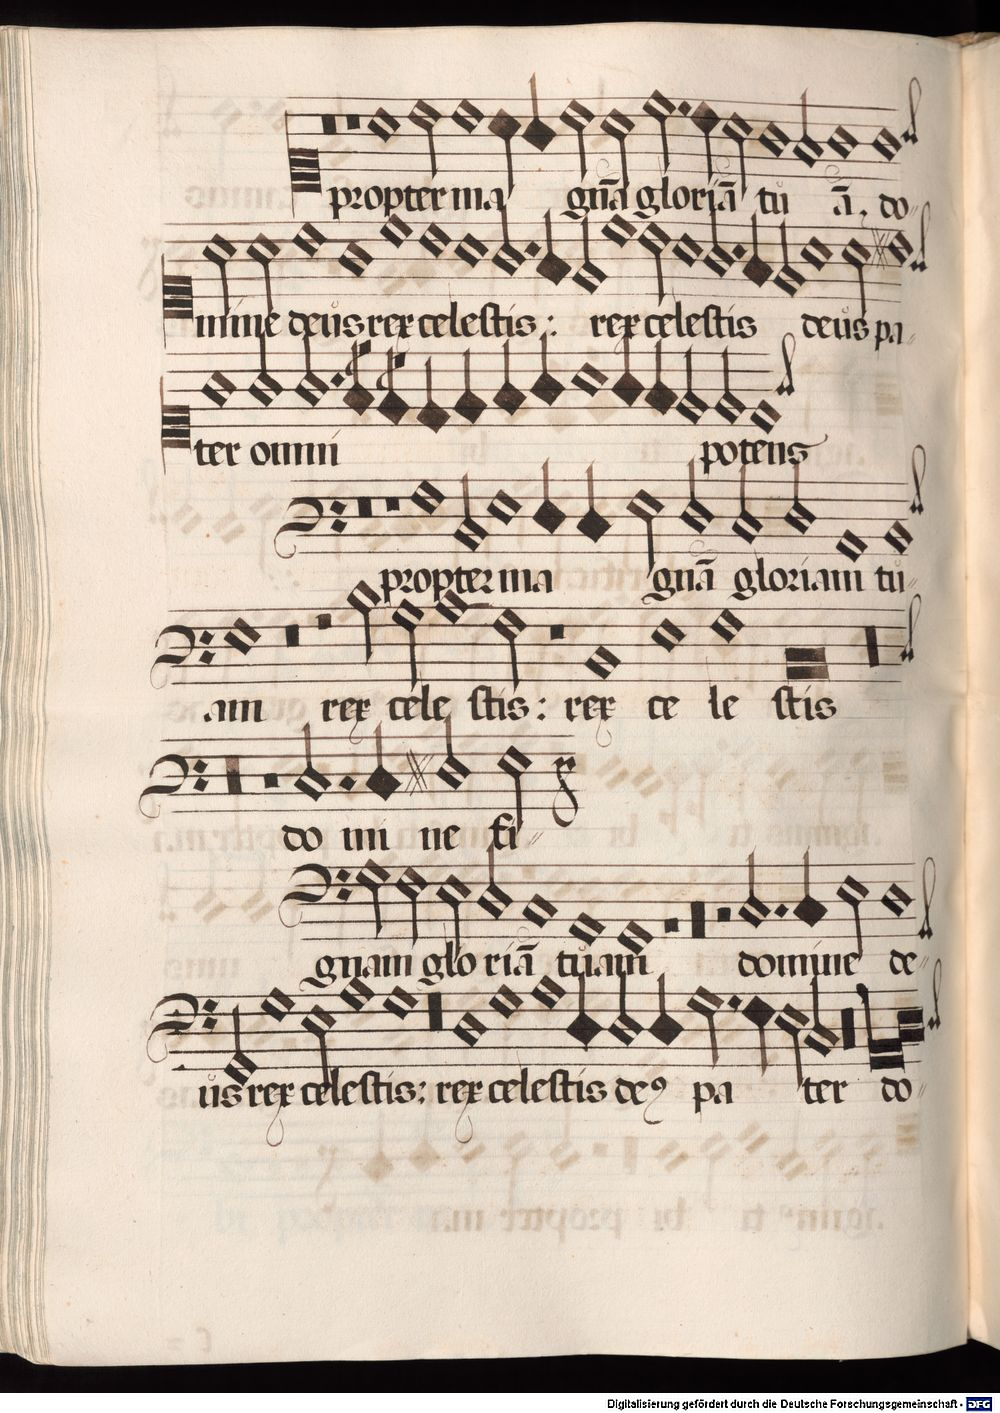 propter ma gnā gloriā tu ā. do
mine deus rex celestis: rex celestis deus pa
ter omni potens
propter ma gnā gloriam tu
am rex cele stis: rex ce le stis
do mi ne fi
gnam glo riā tuam domine de
us rex celestis: rex celestis deꝰ pa ter do
Digitalisierung gefördert durch die Deutsche Forschungsgemeinschaft - DFG